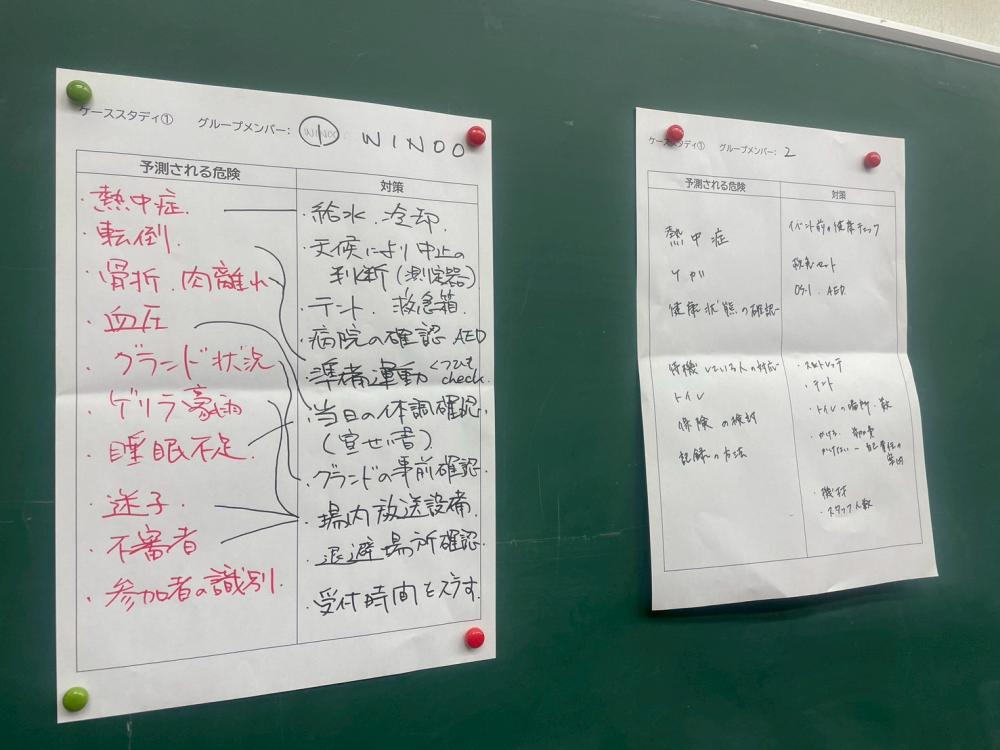 ケーススタディ① グループメンバー: WINOO
予測される危険
・熱中症.
・転倒.
・骨折.肉離れ
・血圧
・グランド状況
・ゲリラ豪雨
・睡眠不足.
・迷子.
・不審者
・参加者の識別.
対策
・給水.冷却.
・天候により中止の
判断(測定器)
・テント.救急箱.
・病院の確認 AED
・準備運動 くつひも
check.
・当日の体調確認.
(宣せい書)
・グランドの事前確認.
・場内放送設備.
・退避場所確認.
・受付時間をズラす.
ケーススタディ① グループメンバー: 2
予測される危険
熱中症
ケガ
健康状態の確認
待機している人の対応
トイレ
保険の検討
記録の方法
対策
イベント前の健康チェック
救急セット
OS-1. AED
・ストレッチ
・テント
・トイレの場所.数
・かける 参加費
かけない ー 自己責任の
・機材
・スタッフ人数